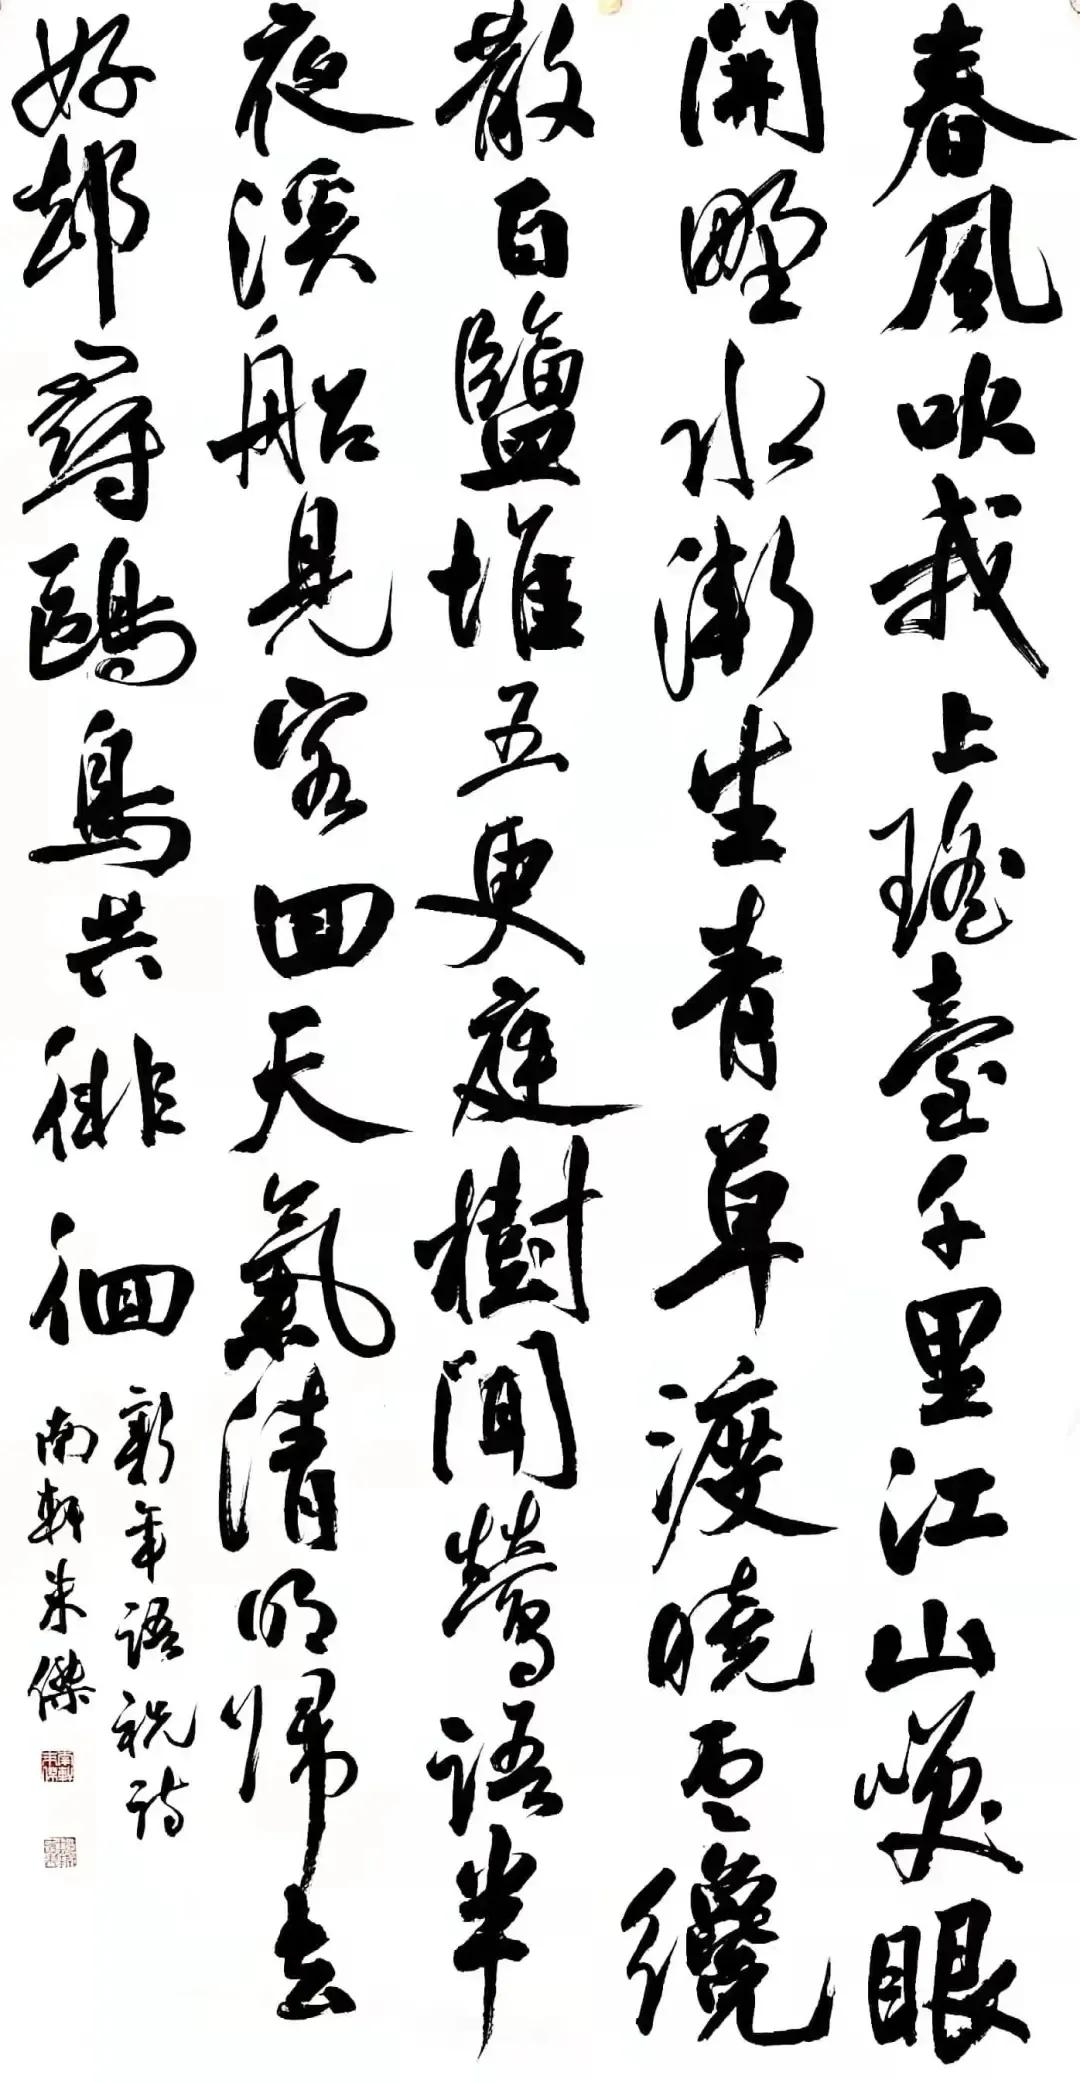 春風吹我上瑤臺千里江山暎眼
開野水漸生青草渡曉雲纔
散白鹽堆五更庭樹聞鶯語半
夜溪船見客回天氣清明歸去
好却尋鷗鳥共徘徊
新年語祝詩
南軒朱傑